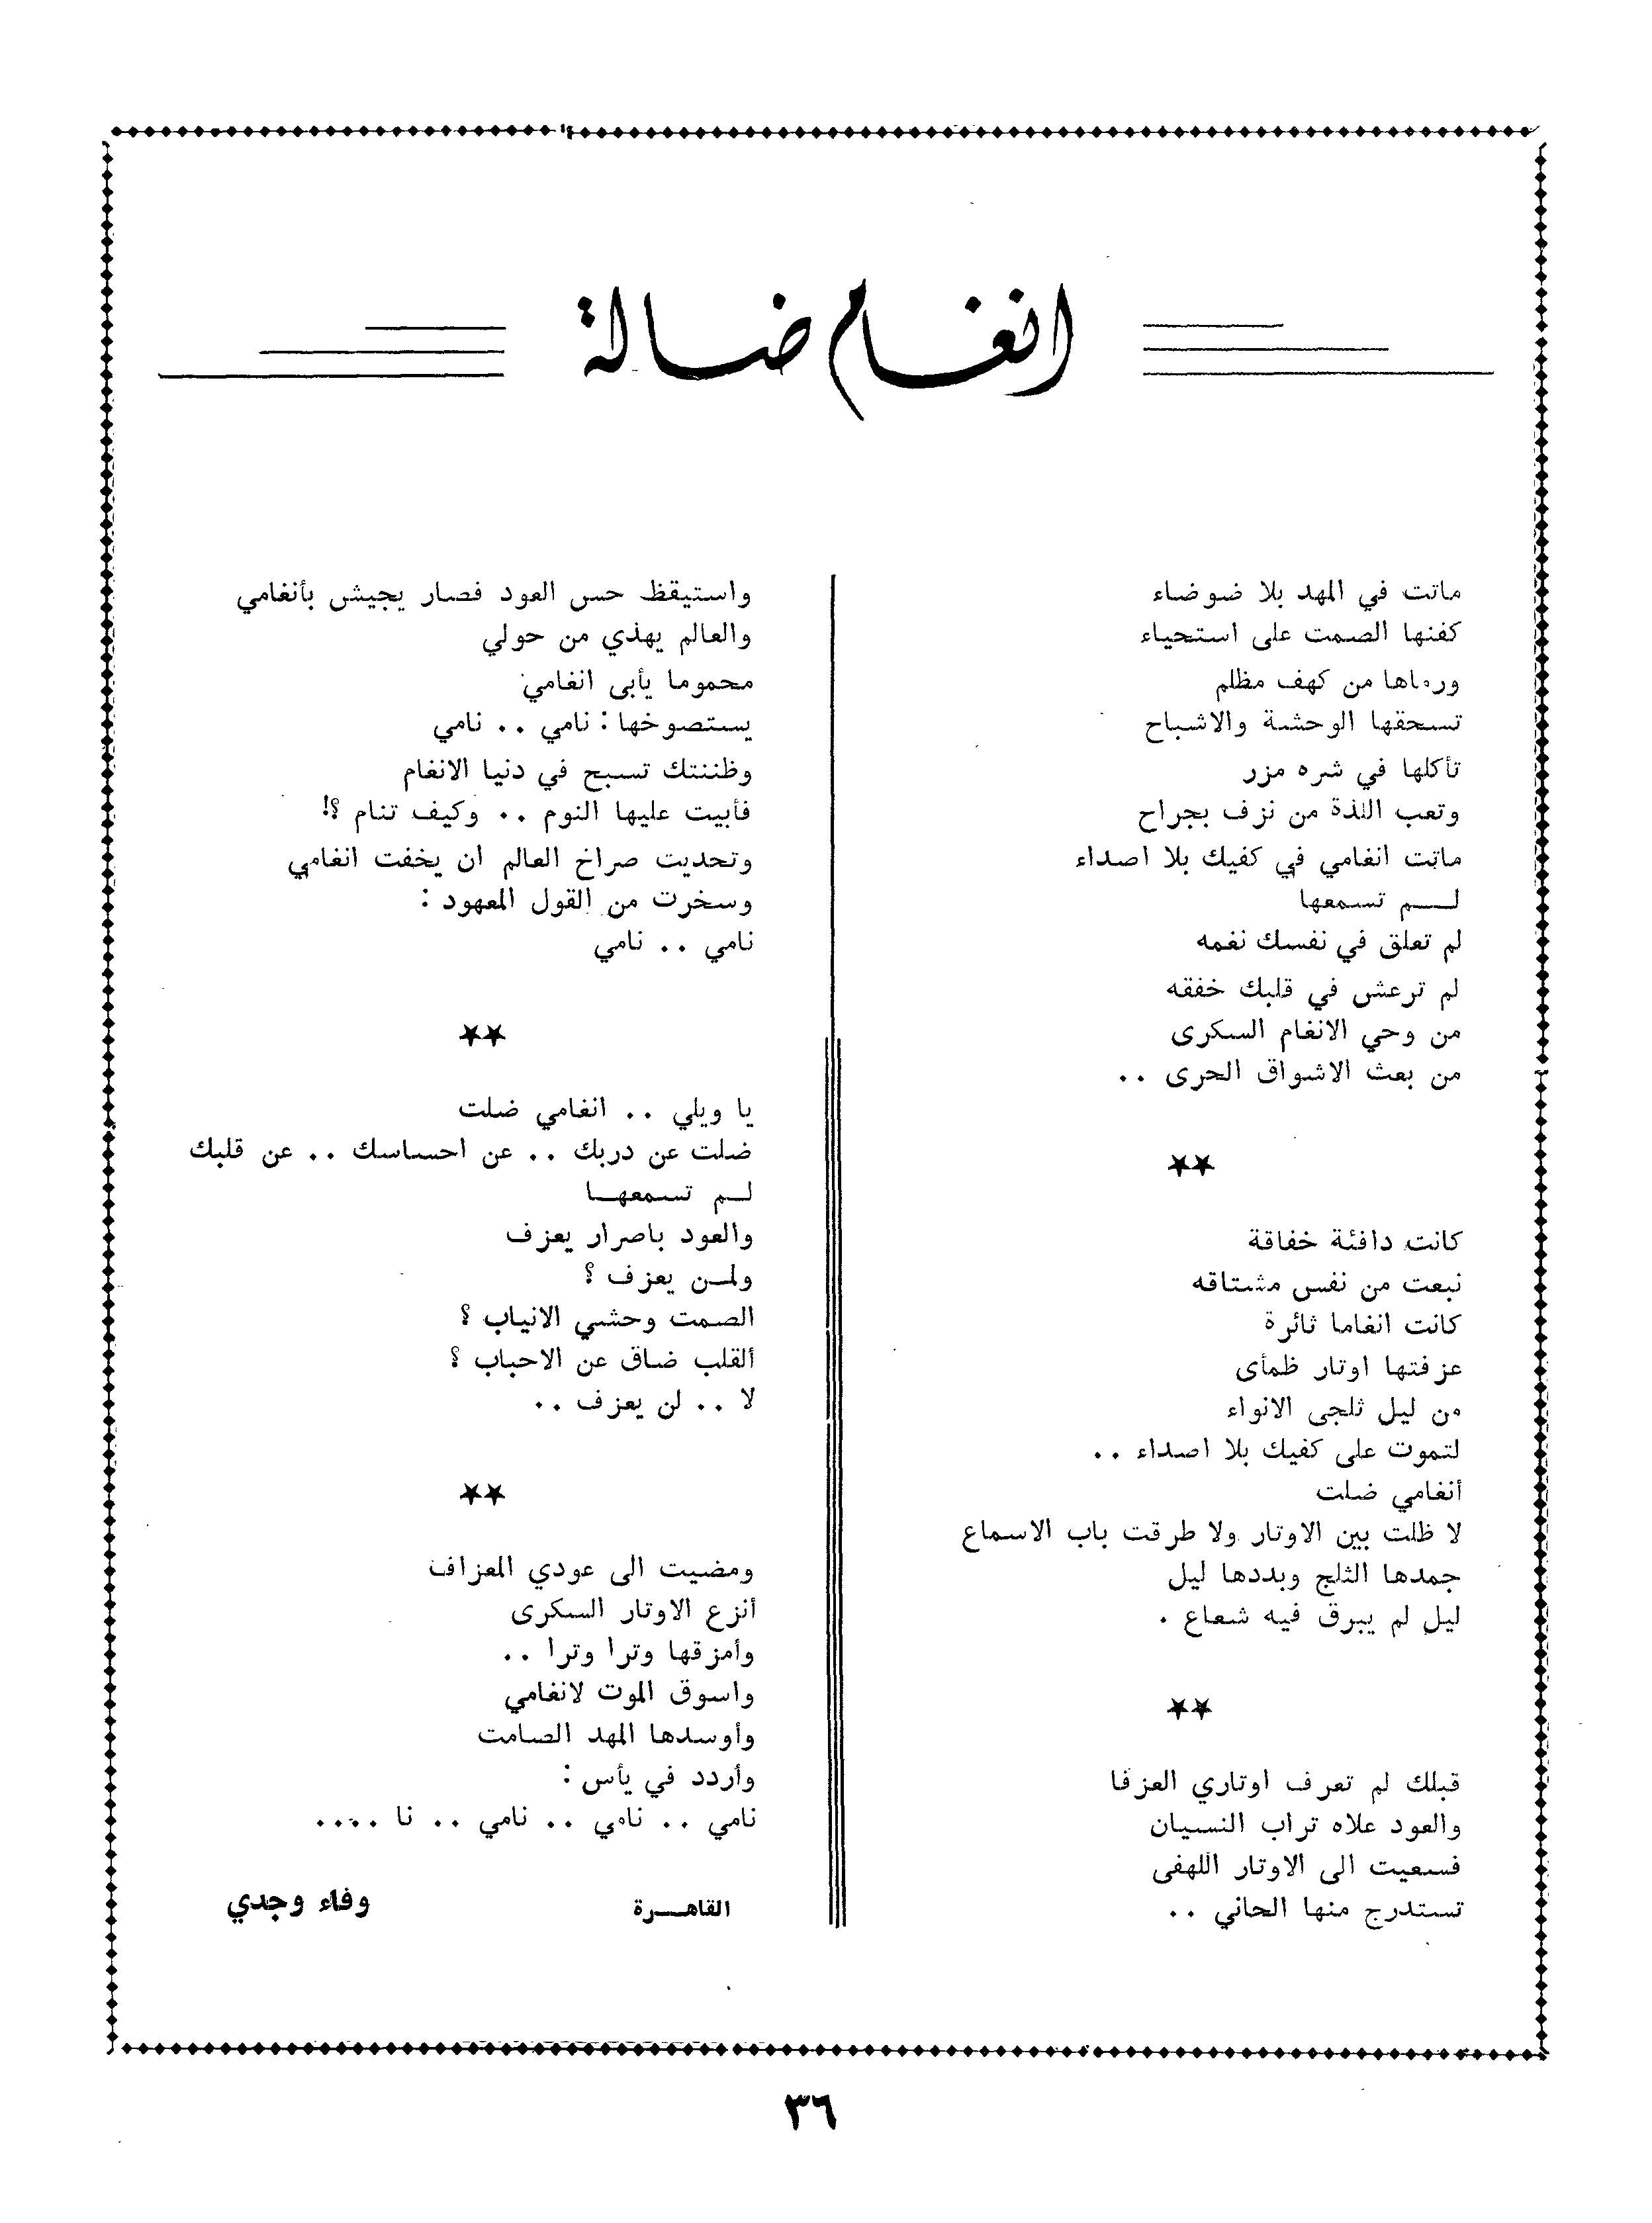 انغام ضالة
ماتت في المهد بلا ضوضاء
كفنها الصمت على استحياء
ورماها من كهف مظلم
تسحقها الوحشة والاشباح
تأكلها في شره مزر
وتعب اللذة من نزف بجراح
ماتت انغامي في كفيك بلا اصداء
لم تسمعها
لم تعلق في نفسك نغمه
لم ترعش في قلبك خفقه
من وحي الانغام السكرى
من بعث الاشواق الحرى ..
★★
كانت دافئة خفاقة
نبعت من نفس مشتاقه
كانت انغاما ثائرة
عزفتها اوتار ظمأى
من ليل ثلجى الانواء
لتموت على كفيك بلا اصداء ..
أنغامي ضلت
لا ظلت بين الاوتار ولا طرقت باب الاسماع
جمدها الثلج وبددها ليل
ليل لم يبرق فيه شعاع .
★★
قبلك لم تعرف اوتاري العزفا
والعود علاه تراب النسيان
فسعيت الى الاوتار اللهفى
تستدرج منها الحاني ..
واستيقظ حس العود فصار يجيش بأنغامي
والعالم يهذي من حولي
محموما يأبى انغامي
يستصوخها : نامي .. نامي
وظننتك تسبح في دنيا الانغام
فأبيت عليها النوم .. وكيف تنام ؟!
وتحديت صراخ العالم ان يخفت انغامي
وسخرت من القول المعهود :
نامي .. نامي
★★
يا ويلي .. انغامي ضلت
ضلت عن دربك .. عن احساسك .. عن قلبك
لم تسمعها
والعود باصرار يعزف
ولمن يعزف ؟
الصمت وحشي الانياب ؟
ألقلب ضاق عن الاحباب ؟
لا .. لن يعزف ..
★★
ومضيت الى عودي المعزاف
أنزع الاوتار السكرى
وأمزقها وترا وترا ..
واسوق الموت لانغامي
وأوسدها المهد الصامت
وأردد في يأس :
نامي .. نامي .. نامي .. نا ....
القاهرة
وفاء وجدي
٣٦